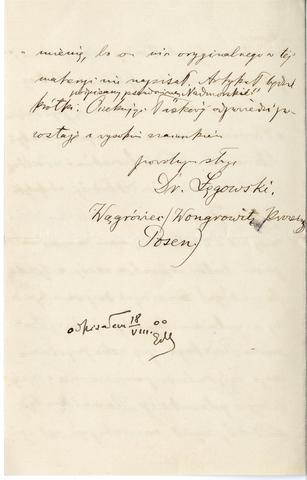 mienią, bo on nic oryginalnego w tej
materyi nie napisał. Artykuł będzie
podpisany pseudonimem „Nadmorski"
krótki. Oczekując łaskawej odpowiedzi po-
zostaję z wysokim szacunkiem
Dr. Łęgowski.
Wągrówiec (Wongrowitz, Provinz
Posen)
odpisałem 18/VIII. 00